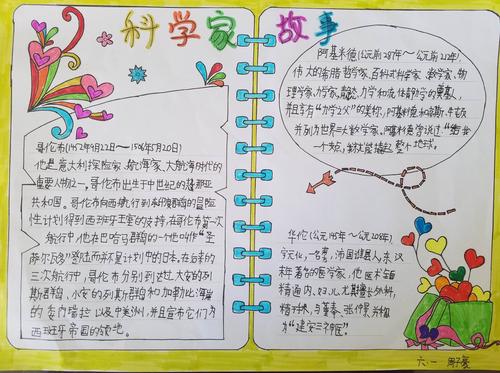 科学家 故事
哥伦布(1452年9月22日～1506年5月20日)
他是意大利探险家、航海家、大航海时代的
重要人物之一。哥伦布出生于中世纪的热那亚
共和国。哥伦布向西航行到东印度群岛的冒险
性计划得到西班牙王室的支持,在哥伦布第一次
航行中,他在巴哈马群岛的一个他叫作“圣
萨尔瓦多”登陆而并不是计划中的日本,在后来的
三次航行中,哥伦布分别到达过大安的列
斯群岛、小安的列斯群岛和加勒比海岸
的委内瑞拉以及中美洲,并且宣布它们为
西班牙帝国的领地。
阿基米德(公元前287年～公元前212年),
伟大的希腊哲学家、百科式科学家、数学家、物
理学家、力学家,静态力学和流体静力学的奠基人,
并且享有“力学之父”的美称,阿基米德和高斯、牛顿
并列为世界三大数学家。阿基米德曾说过:“给我
一个支点,我就能撬起整个地球。”
华佗(公元145年～公元208年),
字元化,一名旉,沛国谯县人,东汉
末年著名的医学家,他医术全面
精通内、妇、儿
为“建安三神医”。
六.一